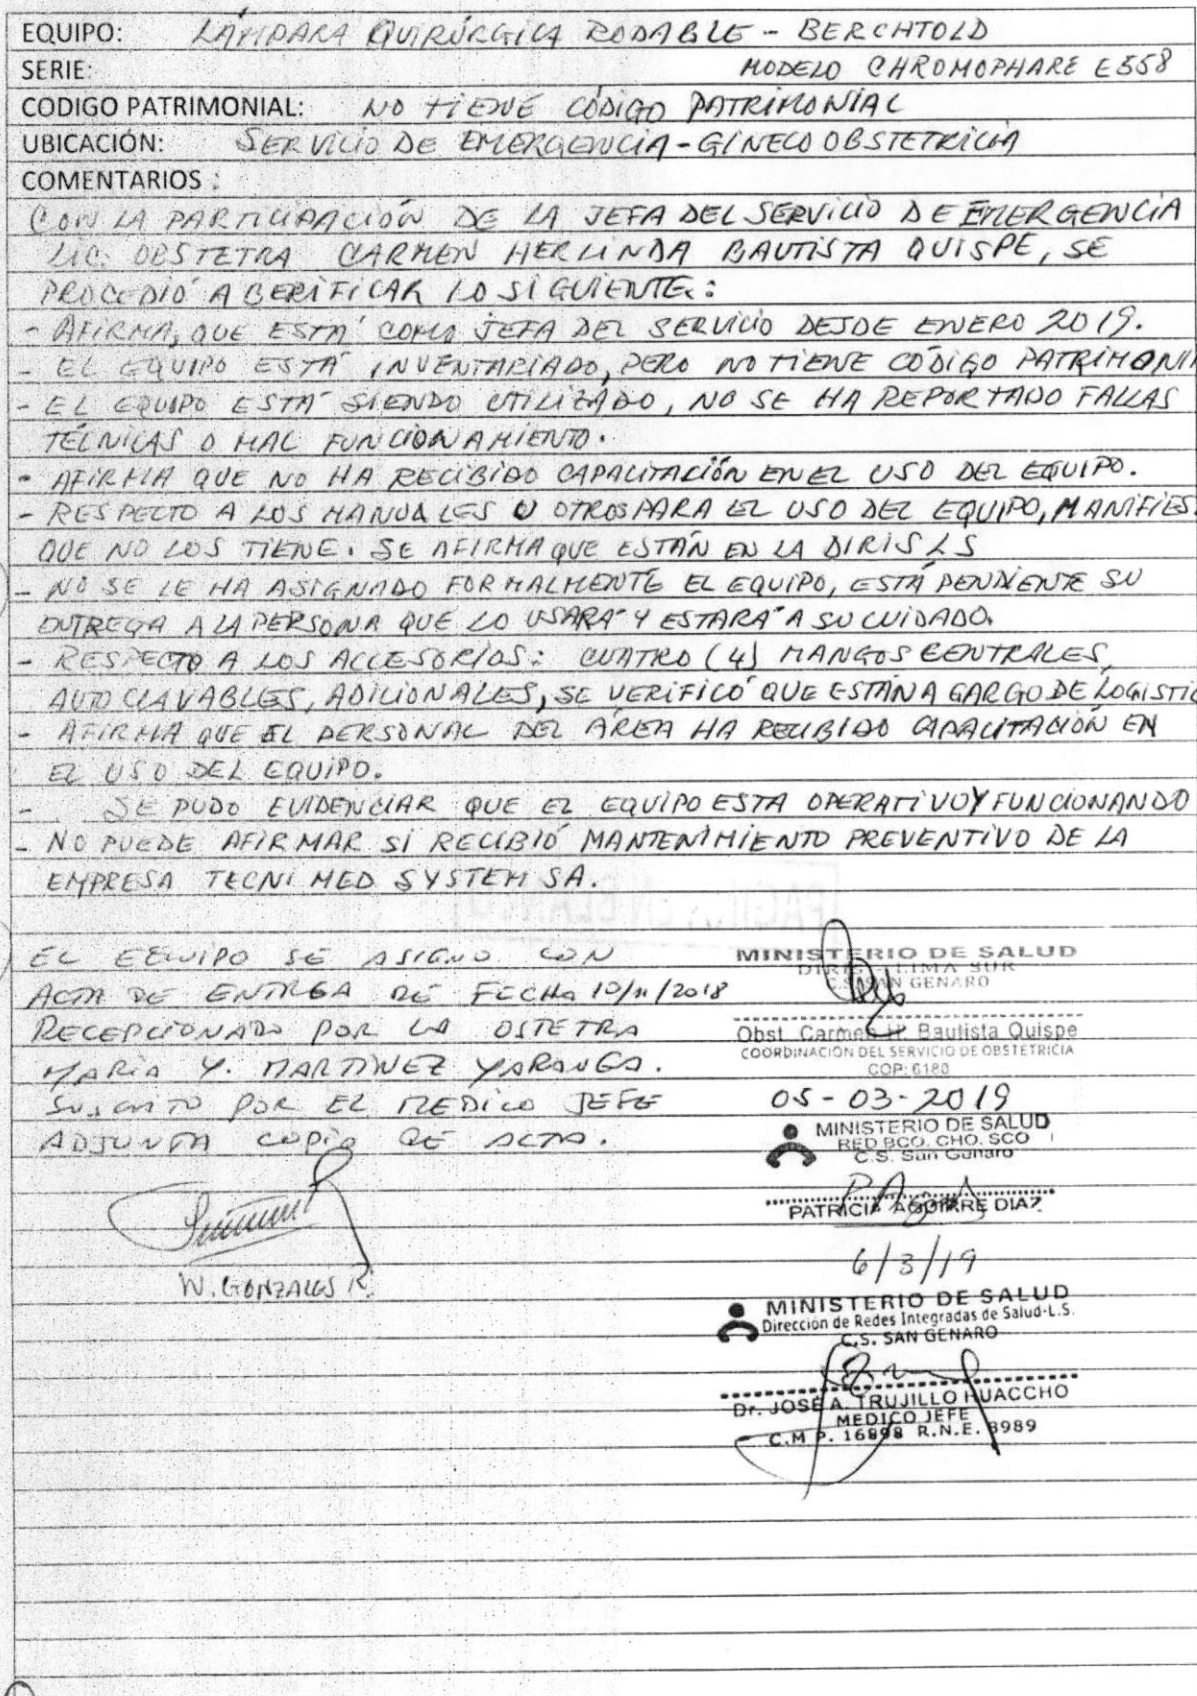 EQUIPO: LÁMPARA QUIRÚRGICA RODABLE - BERCHTOLD
SERIE: MODELO CHROMOPHARE E558
CODIGO PATRIMONIAL: NO TIENE CÓDIGO PATRIMONIAL
UBICACIÓN: SERVICIO DE EMERGENCIA - GINECO OBSTETRICIA
COMENTARIOS :
CON LA PARTICIPACIÓN DE LA JEFA DEL SERVICIO DE EMERGENCIA
LIC. OBSTETRA CARMEN HERLINDA BAUTISTA QUISPE, SE
PROCEDIÓ A BERIFICAR LO SIGUIENTE:
- AFIRMA, QUE ESTÁ COMO JEFA DEL SERVICIO DESDE ENERO 2019.
- EL EQUIPO ESTÁ INVENTARIADO, PERO NO TIENE CÓDIGO PATRIMONIA
- EL EQUIPO ESTÁ SIENDO UTILIZADO, NO SE HA REPORTADO FALLAS
TÉCNICAS O MAL FUNCIONAMIENTO.
- AFIRMA QUE NO HA RECIBIDO CAPACITACIÓN EN EL USO DEL EQUIPO.
- RESPECTO A LOS MANUALES U OTROS PARA EL USO DEL EQUIPO, MANIFIES.
QUE NO LOS TIENE. SE AFIRMA QUE ESTÁN EN LA DIRIS LS
- NO SE LE HA ASIGNADO FORMALMENTE EL EQUIPO, ESTÁ PENDIENTE SU
ENTREGA A LA PERSONA QUE LO USARÁ Y ESTARÁ A SU CUIDADO.
- RESPECTO A LOS ACCESORIOS: CUATRO (4) MANGOS CENTRALES,
AUTOCLAVABLES, ADICIONALES, SE VERIFICÓ QUE ESTÁN A CARGO DE LOGISTIC
- AFIRMA QUE EL PERSONAL DEL ÁREA HA RECIBIDO CAPACITACIÓN EN
EL USO DEL EQUIPO.
- SE PUDO EVIDENCIAR QUE EL EQUIPO ESTA OPERATIVO Y FUNCIONANDO
- NO PUEDE AFIRMAR SI RECIBIÓ MANTENIMIENTO PREVENTIVO DE LA
EMPRESA TECNI MED SYSTEM SA.
EL EQUIPO SE ASIGNO CON
ACTA DE ENTREGA DE FECHA 10/11/2018
RECEPCIONADO POR LA OSTETRA
MARIA Y. MARTINEZ YARANGA.
SUSCRITO POR EL MEDICO JEFE
ADJUNTA COPIA DE ACTA.
W. GONZALES R.
MINISTERIO DE SALUD
DIRIS LIMA SUR
C.S. SAN GENARO
Obst. Carmen H. Bautista Quispe
COORDINACIÓN DEL SERVICIO DE OBSTETRICIA
COP: 6180
05-03-2019
MINISTERIO DE SALUD
RED BCO. CHO. SCO
C.S. San Genaro
PATRICIA AGUIRRE DIAZ
6/3/19
MINISTERIO DE SALUD
Dirección de Redes Integradas de Salud-L.S.
C.S. SAN GENARO
Dr. JOSÉ A. TRUJILLO HUACCHO
MEDICO JEFE
C.M.P. 16898 R.N.E. 8989